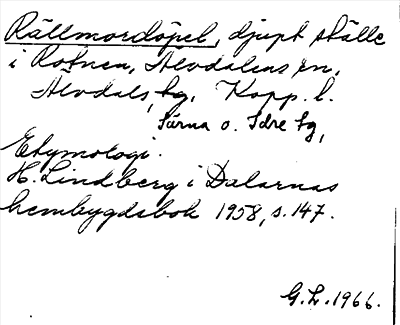 Rällmordöpel, djupt ställe
i Rotnen, Älvdalens sn,
Älvdals tg. Kopp. l.
Särna o. Idre tg,
Etymologi.
H. Lindberg i Dalarnas
hembygdsbok 1958, s. 147.
G. L. 1966.